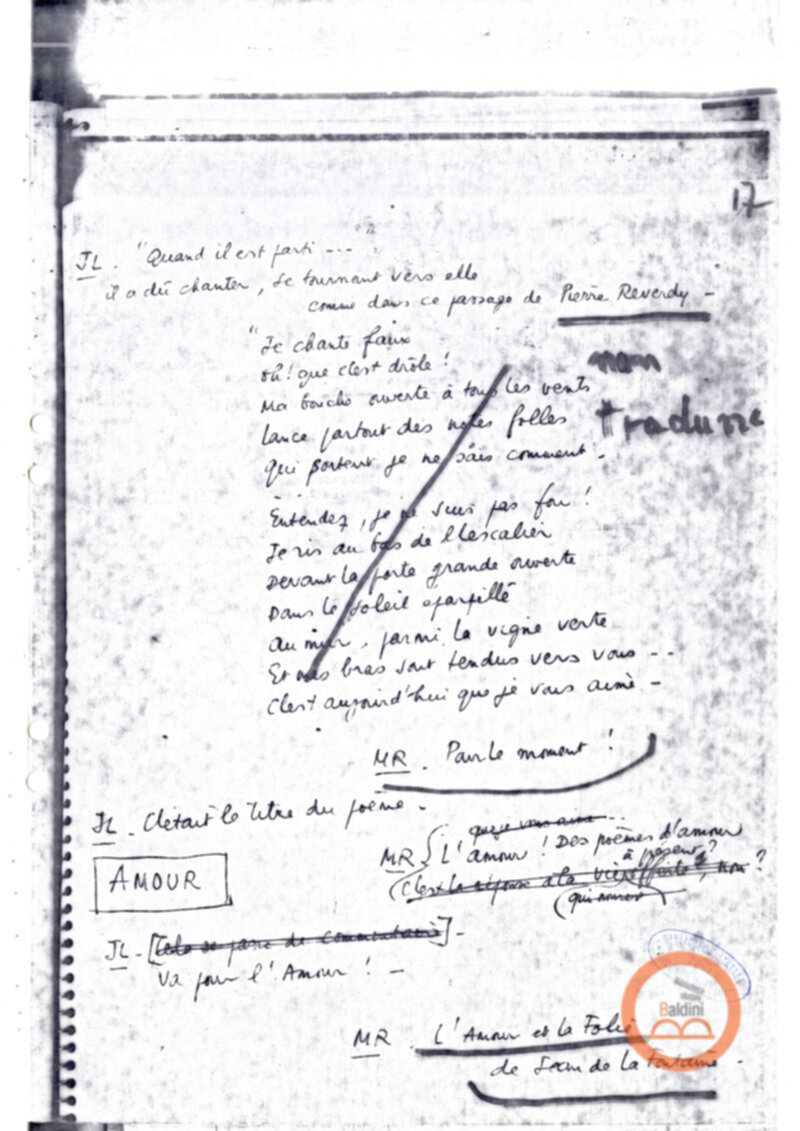 17
JL. "Quand il est parti ---"
il a dû chanter, se tournant vers elle
comme dans ce passage de Pierre Reverdy -
"Je chante faux
oh! que c'est drôle !
Ma bouche ouverte à tous les vents
lance partout des notes folles
qui sortent je ne sais comment.
non
tradurre
Entendez, je ne suis pas fou !
Je ris au bas de l'escalier
Devant la porte grande ouverte
Dans le soleil éparpillé
Au mur, parmi la vigne verte
Et mes bras sont tendus vers vous --
C'est aujourd'hui que je vous aime -
MR. Pour le moment !
JL - C'était le titre du poème.
que je vous aime ...
MR L'amour ! Des poèmes d'amour
à ?
C'est la réponse à la , non ?
AMOUR
JL - [Cela se passe de commentaire] -
Va pour l'Amour ! -
MR. L'Amour et la Folie
de Jean de la Fontaine -
Baldini